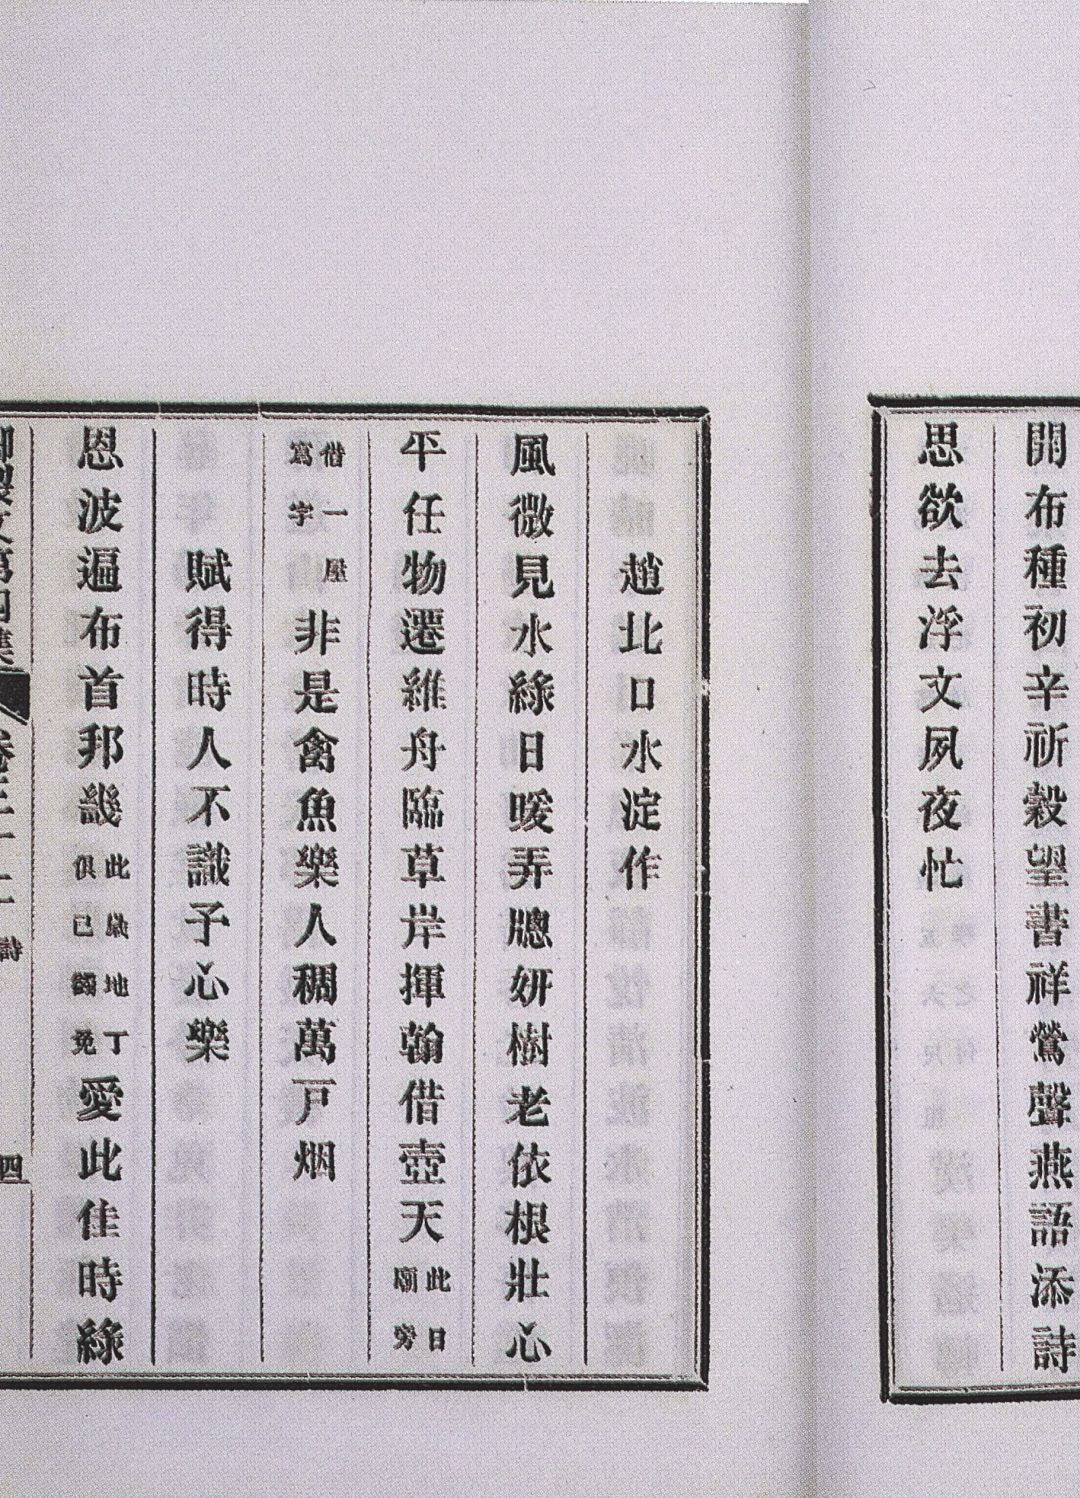 開布種初辛祈穀望書祥鶯聲燕語添詩
思欲去浮文夙夜忙
趙北口水淀作
風微見水綠日暖弄牕妍樹老依根壯心
平任物遷維舟臨草岸揮翰借壺天此日廟旁
借一屋寫字非是禽魚樂人稠萬戸烟
賦得時人不識予心樂
恩波遍布首邦畿此歲地丁俱已蠲免愛此佳時綠
御製文第四集 卷三十二 詩 四